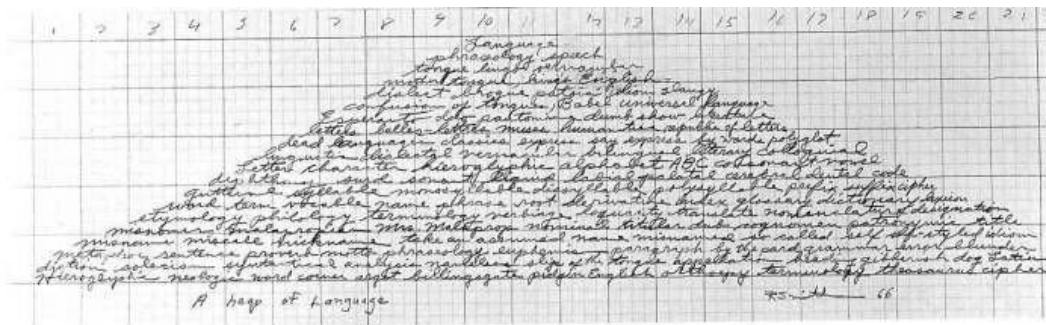 1 2 3 4 5 6 7 8 9 10 11 12 13 14 15 16 17 18 19 20 21
Language
phraseology speech
tongue lingo vernacular
mother tongue king's English
dialect brogue patois idiom slang
confusion of tongues, Babel universal language
Esperanto Ido pantomime dumb show literature
letters belles-lettres muses humanities republic of letters
dead languages classics express say express by words polyglot
linguistic dialectal vernacular bilingual literary colloquial
letter character hieroglyphic alphabet ABC consonant vowel
diphthong surd sonant liquid labial palatal cerebral dental code
guttural syllable monosyllable dissyllable polysyllable prefix suffix cipher
word term vocable name phrase root derivative index glossary dictionary lexicon
etymology philology terminology verbiage loquacity translate nomenclature designation
misnomer malapropism Mrs. Malaprop nominal titular dub cognomen patronymic title
misname miscall nickname take an assumed name misnamed so-called self-styled idiom
metaphor sentence proverb motto phraseology euphemism paragraph grammar error blunder
diction solecism slip of the tongue appellation gibberish dog Latin
Hieroglyphic neologic word coiner argot billingsgate pidgin English orthoepy terminology thesaurus cipher
A heap of Language
R Smith 66